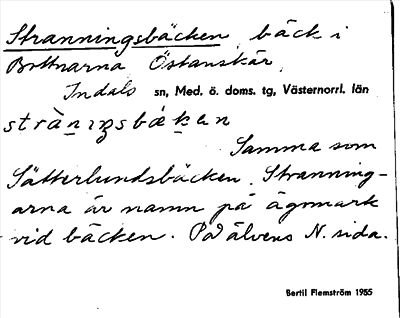 Stranningsbäcken, bäck i
Bottnarna Östanskär,
Indals sn, Med. ö. doms. tg, Västernorrl. län
stràṉıŋsbækan
Samma som
Sätterlundsbäcken. Stranning-
arna är namn på ägomark
vid bäcken. På älvens N. sida.
Bertil Flemström 1955